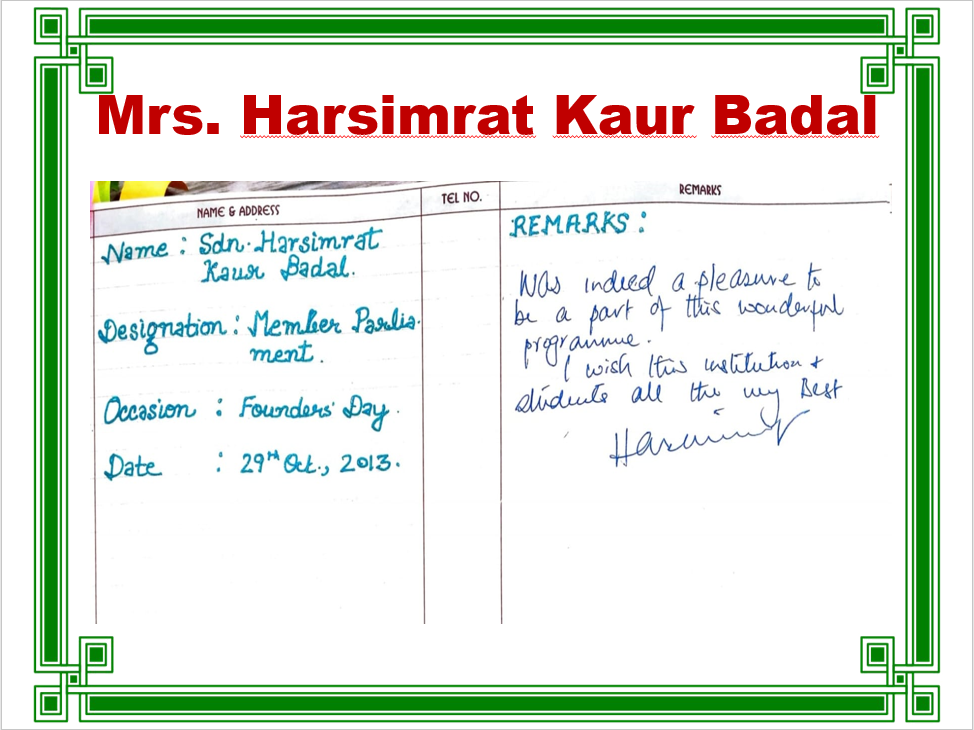 Mrs. Harsimrat Kaur Badal
NAME & ADDRESS
TEL NO.
REMARKS
Name : Sdn. Harsimrat
Kaur Badal.
Designation : Member Parlia-
ment.
Occasion : Founders' Day.
Date : 29th Oct., 2013.
REMARKS :
Was indeed a pleasure to
be a part of this wonderful
programme.
I wish this institution &
students all the very Best